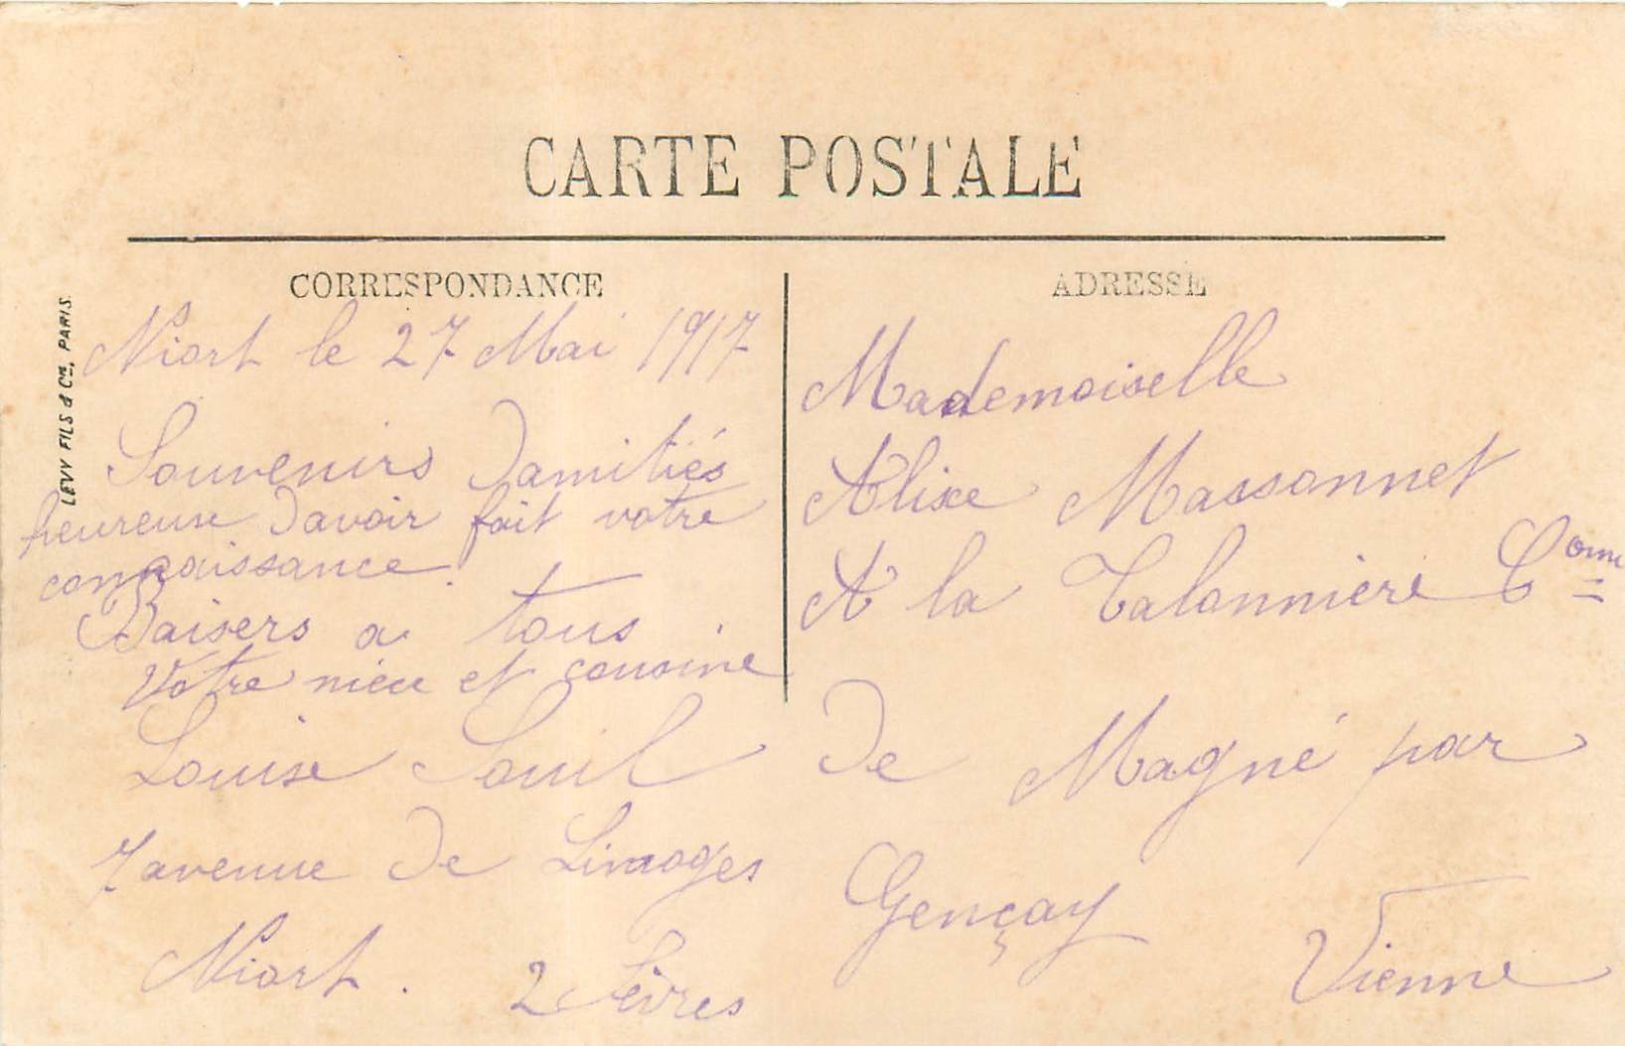 CARTE POSTALE
CORRESPONDANCE
LEVY FILS & Cie, PARIS.
Niort le 27 Mai 1917
Souvenirs Damitiés
heureuse Davoir fait votre
connaissance.
Baisers a tous
Votre niece et cousine
Louise Souil
7 avenue De Limoges
Niort. 2 Sèvres
ADRESSE
Mademoiselle
Alixe Massonnet
A la Talonniere Comne
De Magné par
Gençay
Vienne